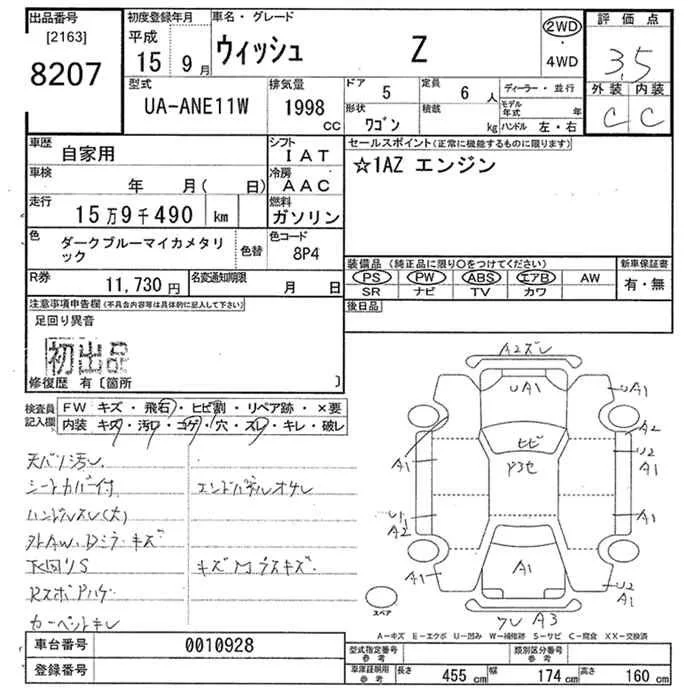 出品番号
[2163]
8207
初度登録年月
平成
15 9月
車名・グレード
ウィッシュ Z
2WD
・
4WD
評価点
3.5
外装 内装
C C
型式
UA-ANE11W
排気量
1998
CC
ドア 5
定員 6 人
形状
ワゴン
積載
kg
ディーラー・並行
モデル年式 年
ハンドル 左・右
車歴
自家用
シフト
IAT
車検
年 月( 日)
冷房
AAC
走行
15万9千490 km
燃料
ガソリン
色
ダークブルーマイカメタリック
色替
色コード
8P4
R券
11,730円
名変通知期限
月 日
セールスポイント(正常に機能するものに限ります)
☆1AZ エンジン
装備品(純正品に限り○をつけてください)
PS PW ABS エアB AW
SR ナビ TV カワ
新車保証書
有・無
後日品
注意事項申告欄(不具合内容等は具体的に記入して下さい)
足回り異音
初出品
修復歴 有〔箇所 〕
検査員
記入欄
FW キズ・飛石・ヒビ割・リペア跡・×要
内装 キズ・汚れ・コゲ・穴・スレ・キレ・破レ
天バリ汚レ
シートカバー付
エンドパネルオサレ
ハンドルスレ(大)
外AW、Dミラーキズ
下回りS
キズMラスキズ
Rスポアハゲ
カーペットキレ
A2ズレ
UA1
UA1
A2
U2
A1
ヒビ
A1
U1
A2
A1
A1
A1
U2
A1
クレA3
スペア
A-キズ E-エクボ U-凹み W-補修跡 S-サビ C-腐食 XX-交換済
車台番号
0010928
登録番号
型式指定番号
参考
類別区分番号
参考
車庫証明用
参考
長さ 455 cm
幅 174 cm
高さ 160 cm